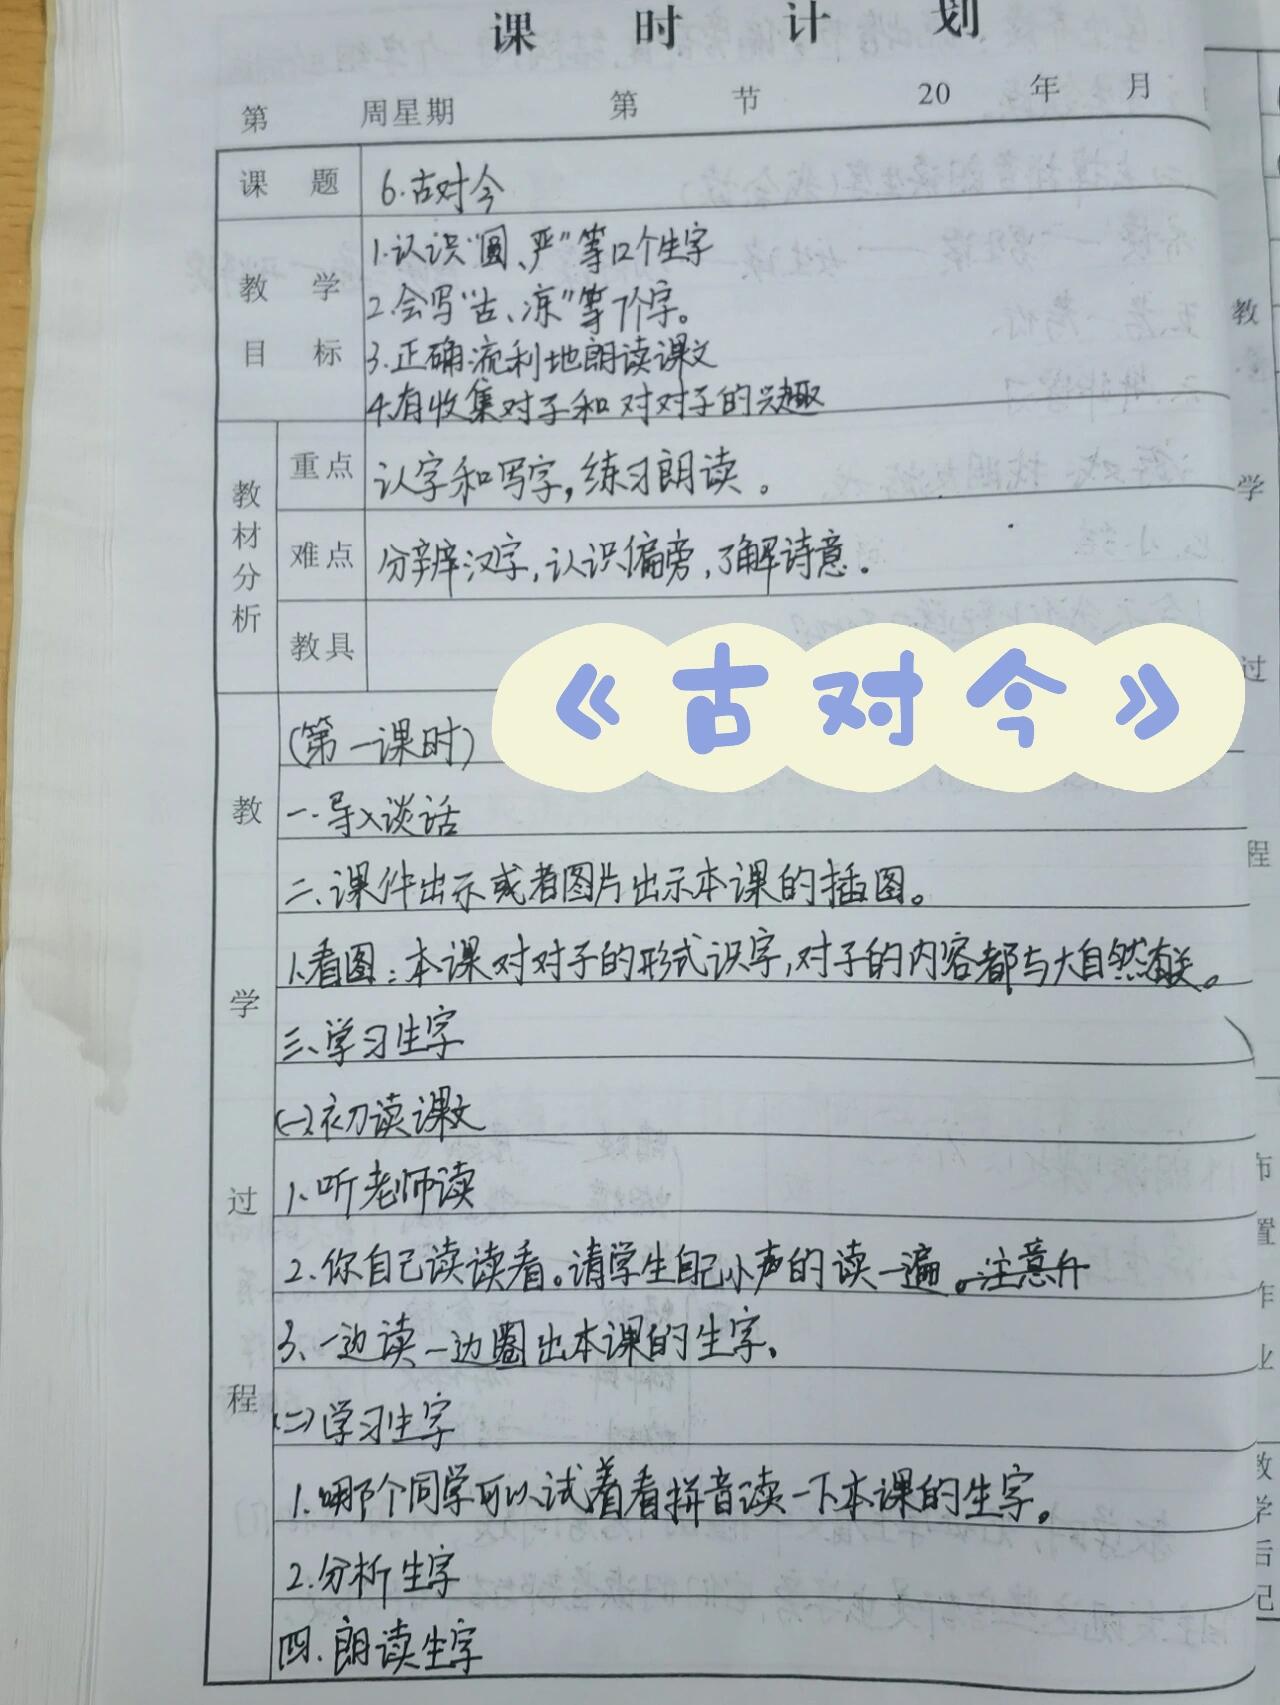 课时计划
第 周星期 第 节 20 年 月
课题 6.古对今
教学目标 1.认识“圆、严”等12个生字
2.会写“古、凉”等7个字。
3.正确流利地朗读课文
4.有收集对子和对对子的兴趣
教材分析
重点 认字和写字,练习朗读。
难点 分辨汉字,认识偏旁,了解诗意。
教具
《古对今》
教学过程
(第一课时)
一.导入谈话
二、课件出示或者图片出示本课的插图。
1.看图:本课对对子的形式识字,对子的内容都与大自然有关。
三、学习生字
(一)初读课文
1、听老师读
2.你自己读读看。请学生自己小声的读一遍。注意升
3、一边读一边圈出本课的生字。
(二)学习生字
1.哪个同学可以试着看拼音读一下本课的生字。
2.分析生字
四.朗读生字
教
学
过
程
布置作业
教学后记